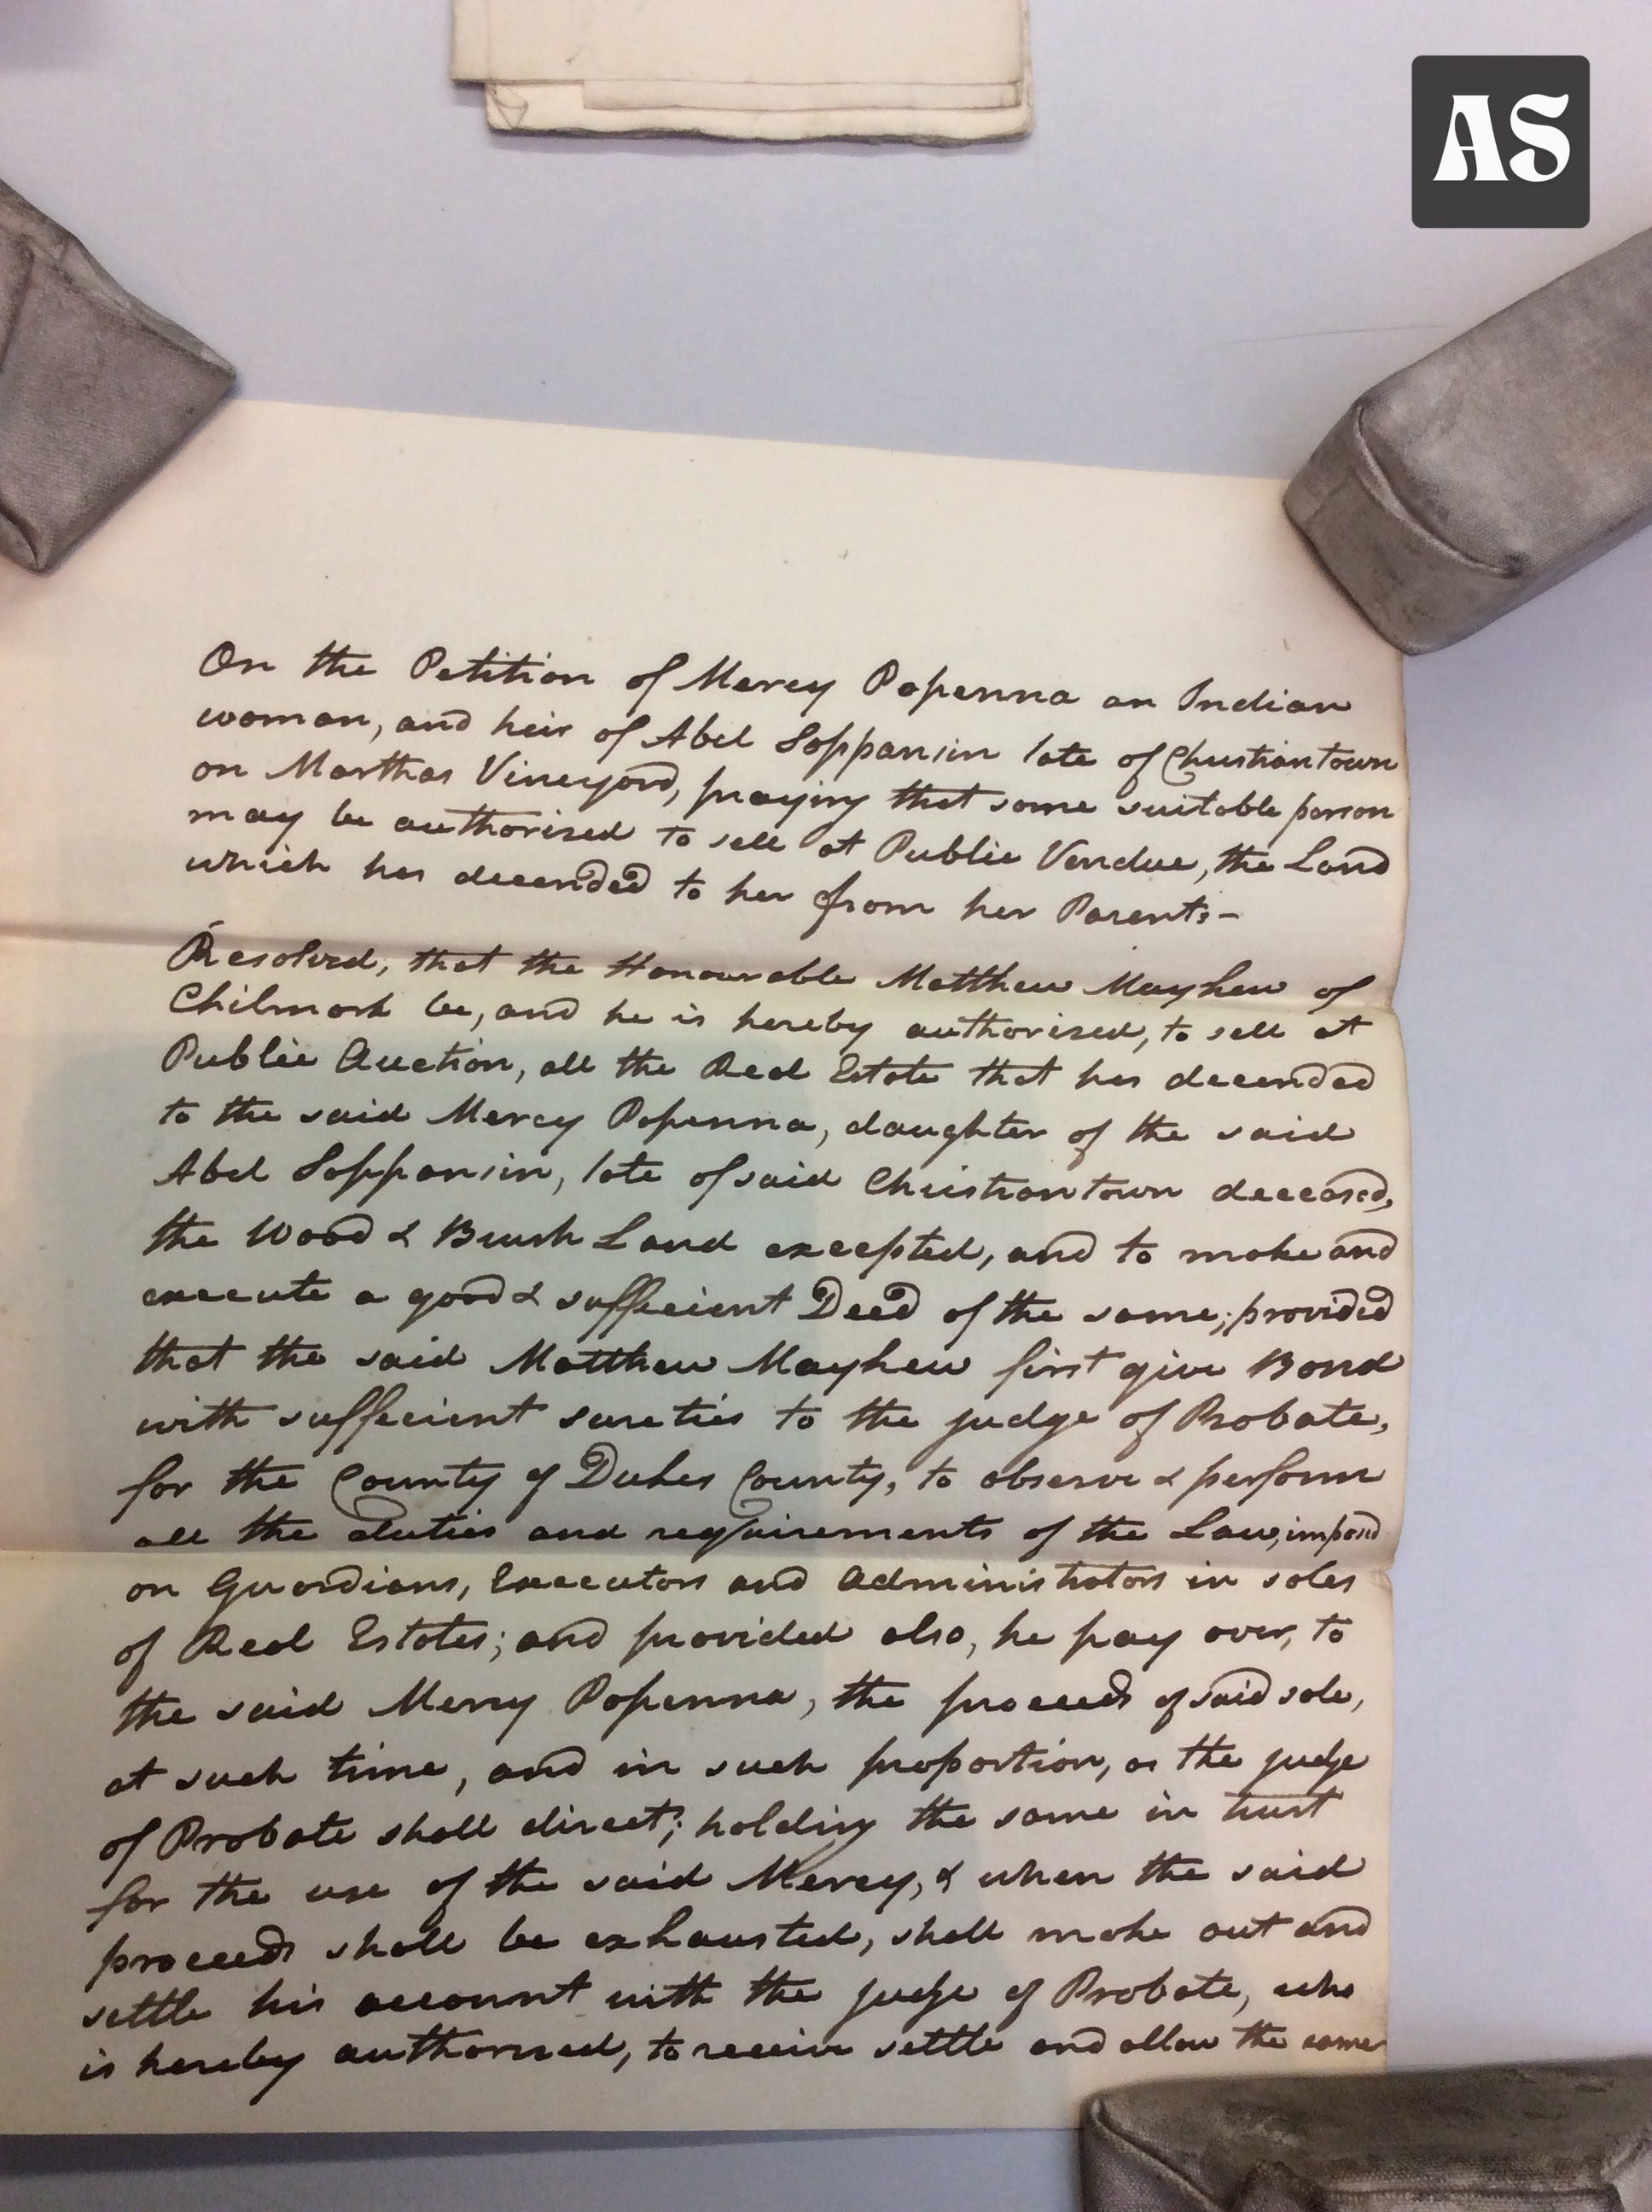 AS
On the Petition of Mercy Popenna an Indian
woman, and heir of Abel Soppansin late of Christiantown
on Marthas Vineyard, praying that some suitable person
may be authorised to sell at Public Vendue, the Land
which has decended to her from her Parents-
Resolved, that the Honourable Matthew Mayhew of
Chilmark be, and he is hereby authorised, to sell at
Public Auction, all the Real Estate that has decended
to the said Mercy Popenna, daughter of the said
Abel Soppansin, late of said Christiantown deceased,
the Wood & Brush Land excepted, and to make and
execute a good & sufficient Deed of the same; provided
that the said Matthew Mayhew first give Bond
with sufficient sureties to the judge of Probate,
for the County of Dukes County, to observe & perform
all the duties and requirements of the Law, imposd
on Guardians, Executors and Administrators in sales
of Real Estates; and provided also, he pay over, to
the said Mercy Popenna, the proceeds of said sale,
at such time, and in such proportion, as the judge
of Probate shall direct; holding the same in trust
for the use of the said Mercy, & when the said
proceeds shall be exhausted, shall make out and
settle his account with the judge of Probate, who
is hereby authorised, to receive settle and allow the same